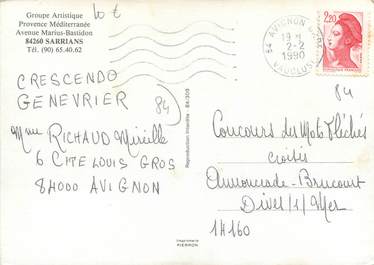 Groupe Artistique
Provence Méditerranée
Avenue Marius-Bastidon
84260 SARRIANS
Tél. (90) 65.40.62
10 €
CRESCENDO
GENEVRIER
84
Mme RICHAUD Mireille
6 CITE LOUIS GROS
84000 AVIGNON
Reproduction interdite - 84/309
Imprimerie
PIERRON
84 AVIGNON
19 H
2-2
1990
VAUCLUSE
2,20
84
Concours des Mots Fléchés
croisés
Annonciade-Brucourt
Dives/s/Mer
14160